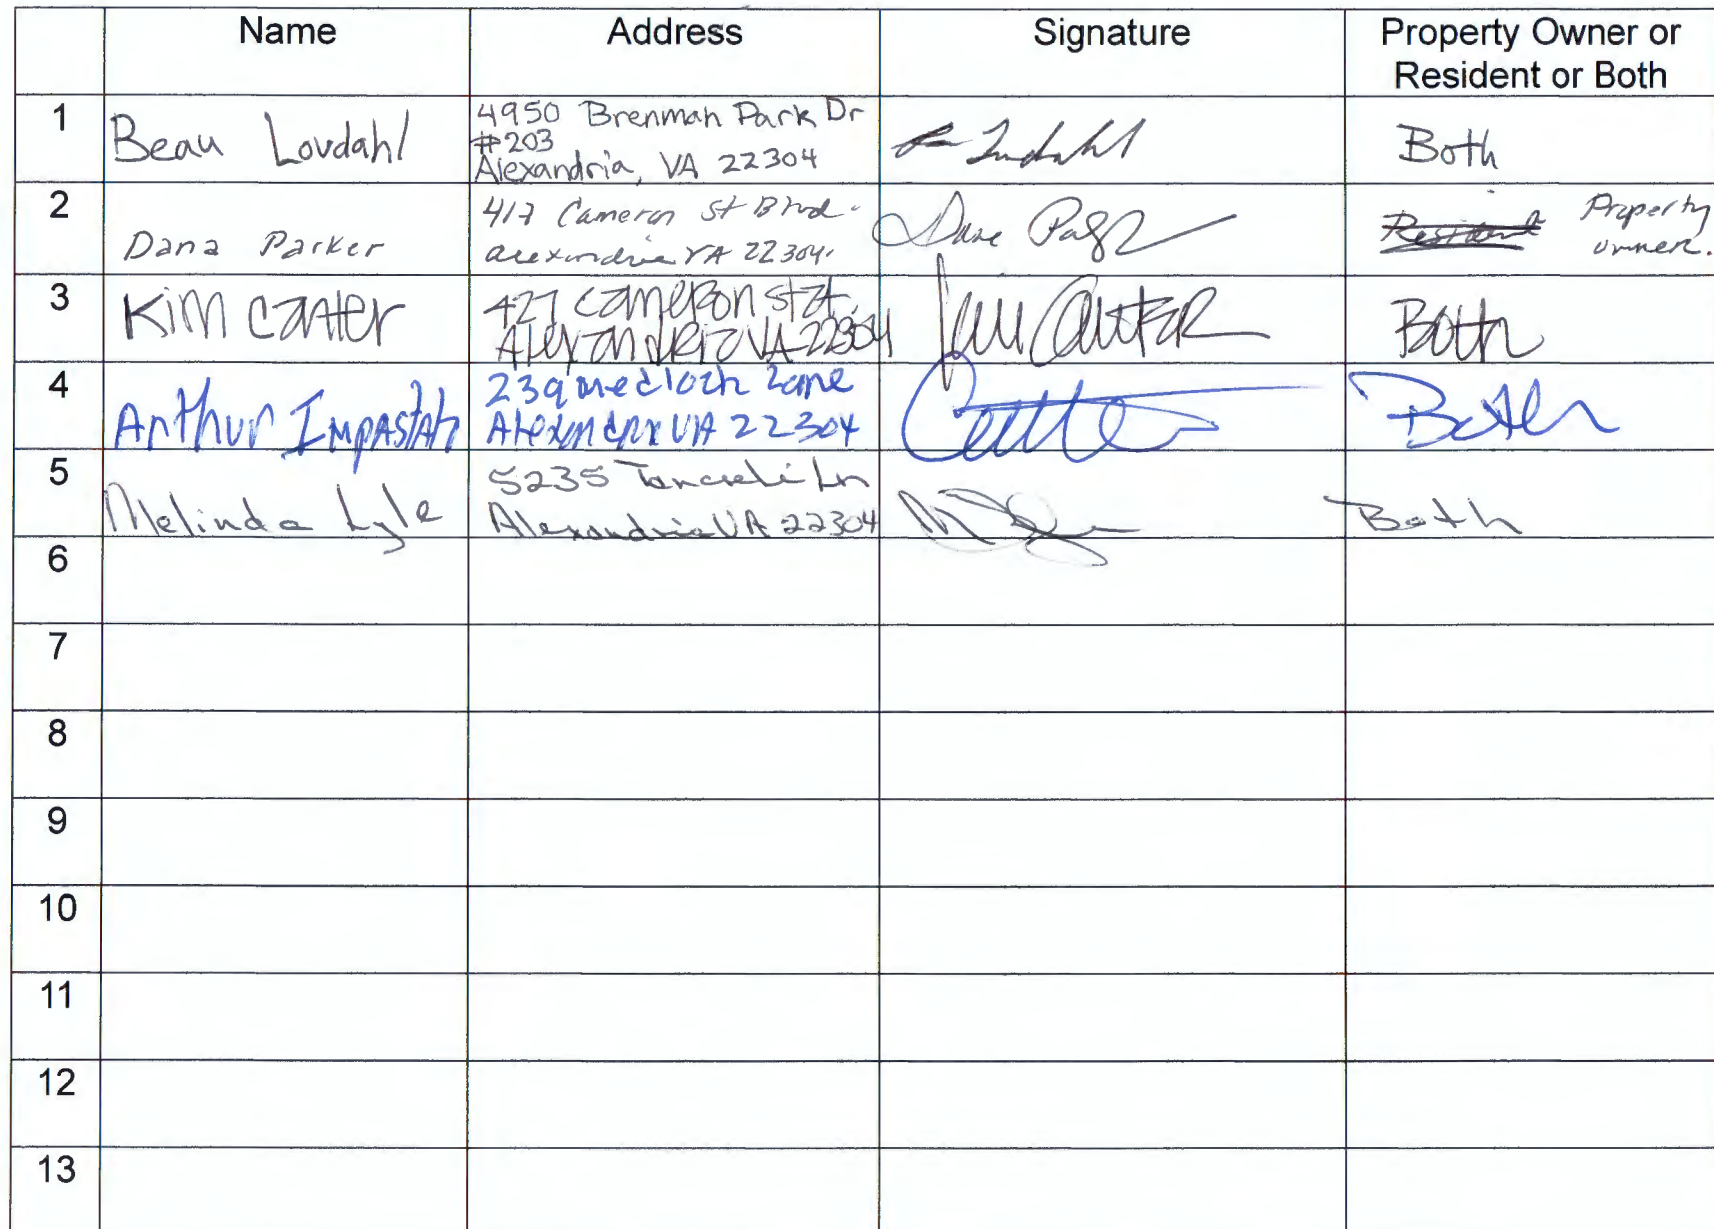 Name Address Signature Property Owner or
Resident or Both
1 Beau Lovdahl 4950 Brenman Park Dr
#203
Alexandria, VA 22304 Both
2 Dana Parker 417 Cameron St Blvd.
Alexandria VA 22304. Resident Property
owner.
3 Kim Canter 427 Cameron Stat.
Alexandria VA 22304 Kim Canter Both
4 Arthur Impastato 239 Medloch Lane
Alexandria VA 22304 Both
5 Melinda Lyle 5235 Ln
Alexandria VA 22304 Both
6
7
8
9
10
11
12
13